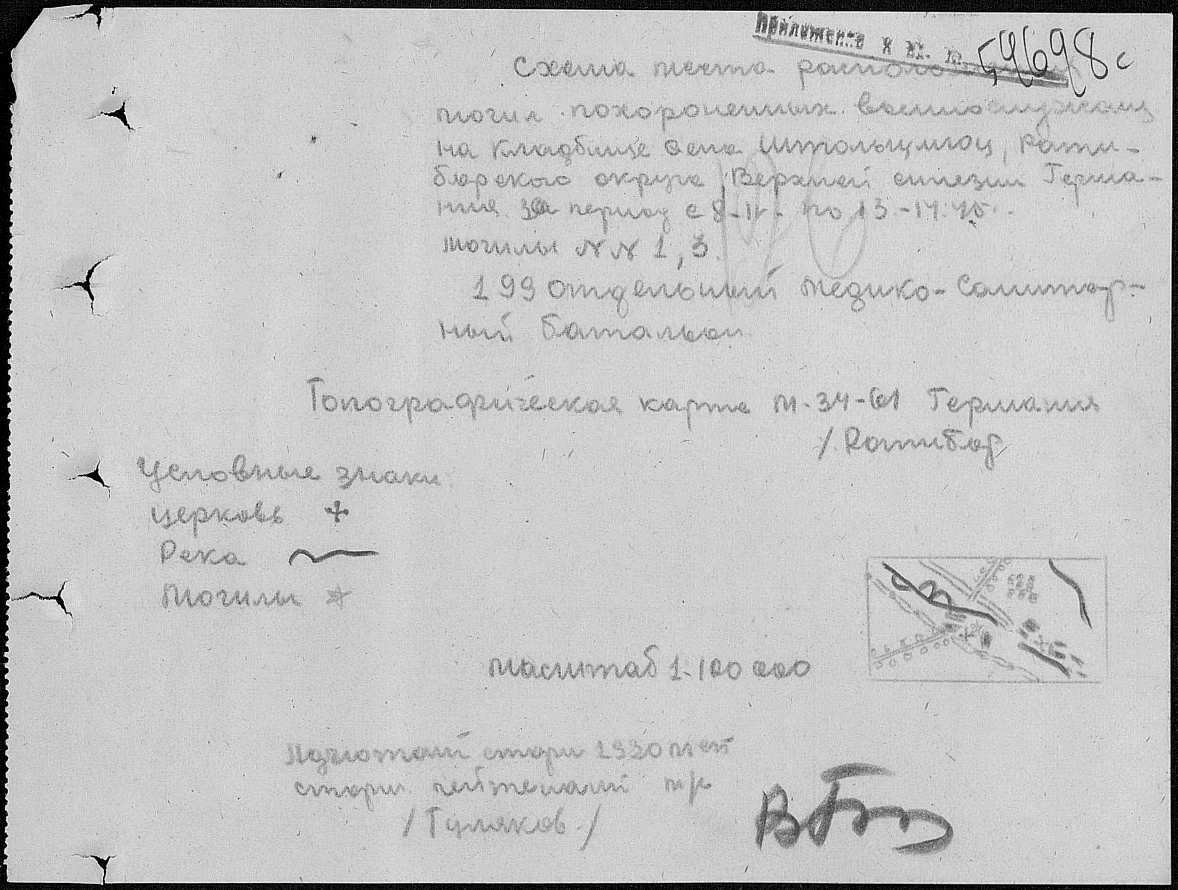 Приложение к вх. № 59698с
Схема места располо
могил похороненных военнослужащ
на кладбище села Штольцмюц, Рати-
борского округа Верхней Силезии Герма-
ния за период с 8-IV- по 13-IV.45.
Могилы NN 1, 3.
199 отдельный медико-санитар-
ный батальон.
Топографическая карта М-34-61 Германия
/Ратибор
Условные знаки
Церковь
Река
Могилы
Масштаб 1-100 000
старш
старш. лейтенант м/с
/Гуляков/